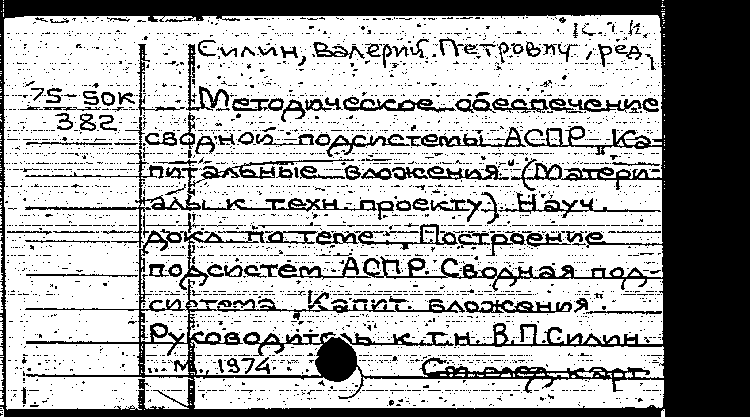 к.т.н.
Силин, Валерий Петрович, ред.
75-50к
382
Методическое обеспечение
сводной подсистемы АСПР „Ка-
питальные вложения" (Матери-
алы к техн. проекту). Науч.
докл. по теме: „Построение
подсистем АСПР. Сводная под-
система „Капит. вложения".
Руководитель к.т.н. В.П.Силин.
... М., 1974.
См. след. карт.